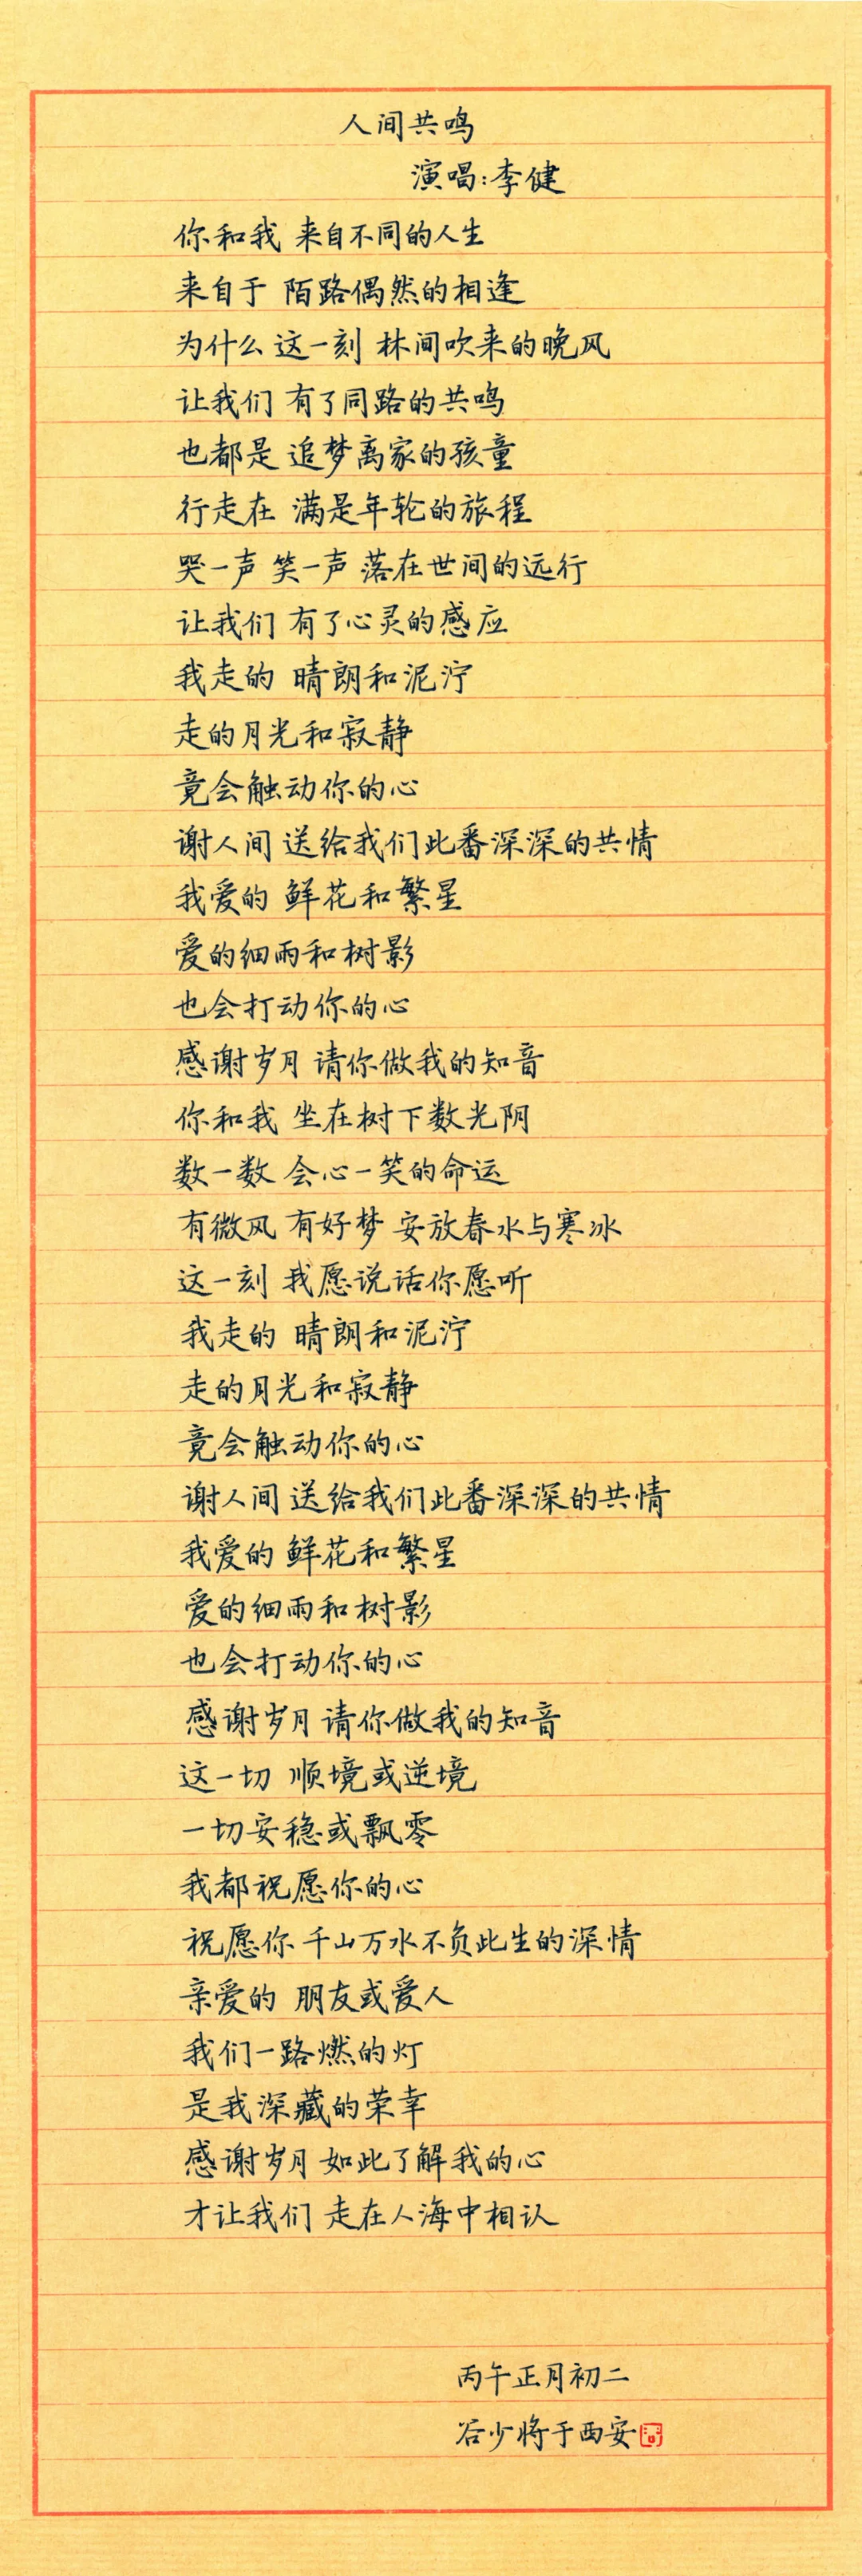 人间共鸣
演唱:李健
你和我 来自不同的人生
来自于 陌路偶然的相逢
为什么 这一刻 林间吹来的晚风
让我们 有了同路的共鸣
也都是 追梦离家的孩童
行走在 满是年轮的旅程
哭一声 笑一声 落在世间的远行
让我们 有了心灵的感应
我走的 晴朗和泥泞
走的月光和寂静
竟会触动你的心
谢人间 送给我们此番深深的共情
我爱的 鲜花和繁星
爱的细雨和树影
也会打动你的心
感谢岁月 请你做我的知音
你和我 坐在树下数光阴
数一数 会心一笑的命运
有微风 有好梦 安放春水与寒冰
这一刻 我愿说话你愿听
我走的 晴朗和泥泞
走的月光和寂静
竟会触动你的心
谢人间 送给我们此番深深的共情
我爱的 鲜花和繁星
爱的细雨和树影
也会打动你的心
感谢岁月 请你做我的知音
这一切 顺境或逆境
一切安稳或飘零
我都祝愿你的心
祝愿你 千山万水不负此生的深情
亲爱的 朋友或爱人
我们一路燃的灯
是我深藏的荣幸
感谢岁月 如此了解我的心
才让我们 走在人海中相认
丙午正月初二
谷少将于西安